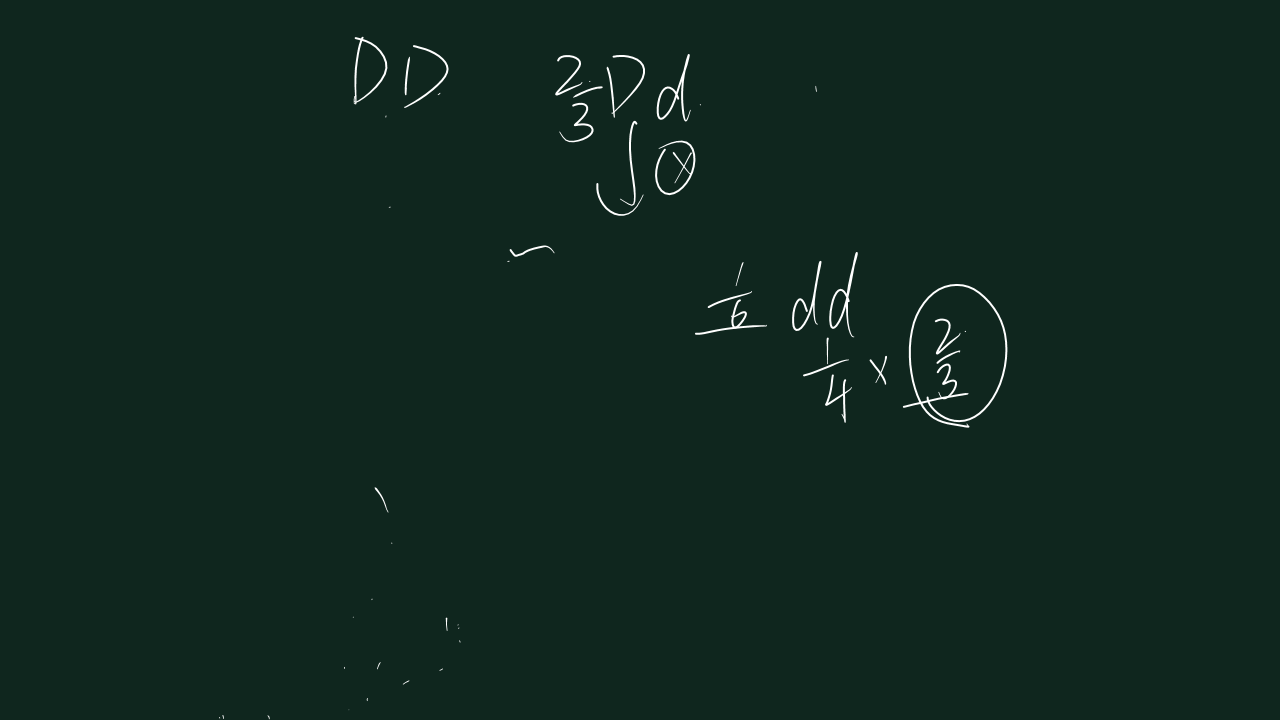 DD 2/3 Dd
⊗
1/6 dd
1/4 × 2/3